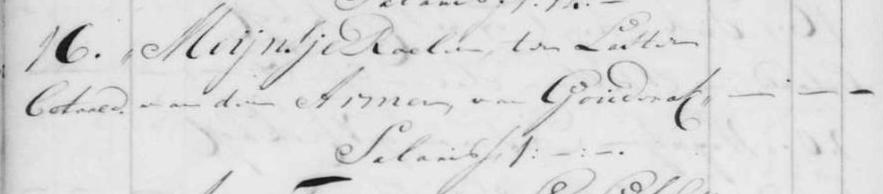 16. „ Meijntje Roelen, ten Lasten
betaald. van den Armen, van Gouderak, — — —
Salaris ƒ 1: —: —.